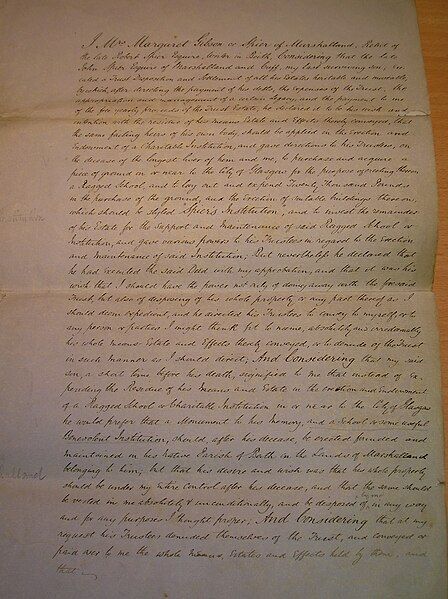 I Mrs Margaret Gibson or Spier of Marshalland, Relict of
the late Robert Spier Esquire, Writer in Beith, Considering that the late
John Spier Esquire of Marshalland and Cuff, my last surviving son, ex-
ecuted a Trust Disposition and Settlement of all his Estates heritable and moveable,
by which, after directing the payment of his debts, the expenses of the Trust, the
appropriation and management of a certain legacy, and the payment to me
of the free yearly proceeds of the Trust Estate, he declared it to be his wish and
intention with the residue of his means Estate and Effects thereby conveyed, that
the same failing heirs of his own body, should be applied in the Erection and
Endowment of a Charitable Institution, and gave directions to his Trustees, on
the decease of the longest liver of him and me, to purchase and acquire a
piece of ground in or near to the City of Glasgow for the purpose of erecting thereon
a Ragged School, and to lay out and expend Twenty Thousand Pounds
in the purchase of the ground, and the Erection of suitable buildings thereon,
which should be styled Spier's Institution, and to invest the remainder
of his Estate for the Support and Maintenance of said Ragged School or
Institution, and gave various powers to his Trustees in regard to the Erection
and Maintenance of said Institution; But nevertheless he declared that
he had executed the said Deed with my approbation, and that it was his
wish that I should have the power not only of doing away with the foresaid
Trust, but also of disposing of his whole property or any part thereof as I
should deem expedient, and he directed his Trustees to convey to myself or to
any person or parties I might think fit to name, absolutely and irredeemably
his whole Means Estate and Effects thereby conveyed, or to denude of the Trust
in such manner as I should direct, And Considering that my said
son, a short time before his death, signified to me that instead of ex-
pending the Residue of his Means and Estate in the erection and Endowment
of a Ragged School or Charitable Institution in or near to the City of Glasgow
he would prefer that a Monument to his Memory, and a School or some useful
Benevolent Institution, should, after his decease, be erected founded and
maintained in his Native Parish of Beith in the Lands of Marshalland
belonging to him; but that his desire and wish was that his whole property
should be under my entire control after his decease, and that the same should
be vested in me absolutely & unconditionally, and be disposed of, by me in any way
and for any purposes I thought proper; And Considering that at my
request his Trustees denuded themselves of the Trust, and conveyed or
paid over to me the whole Means, Estates and Effects held by them, and
that